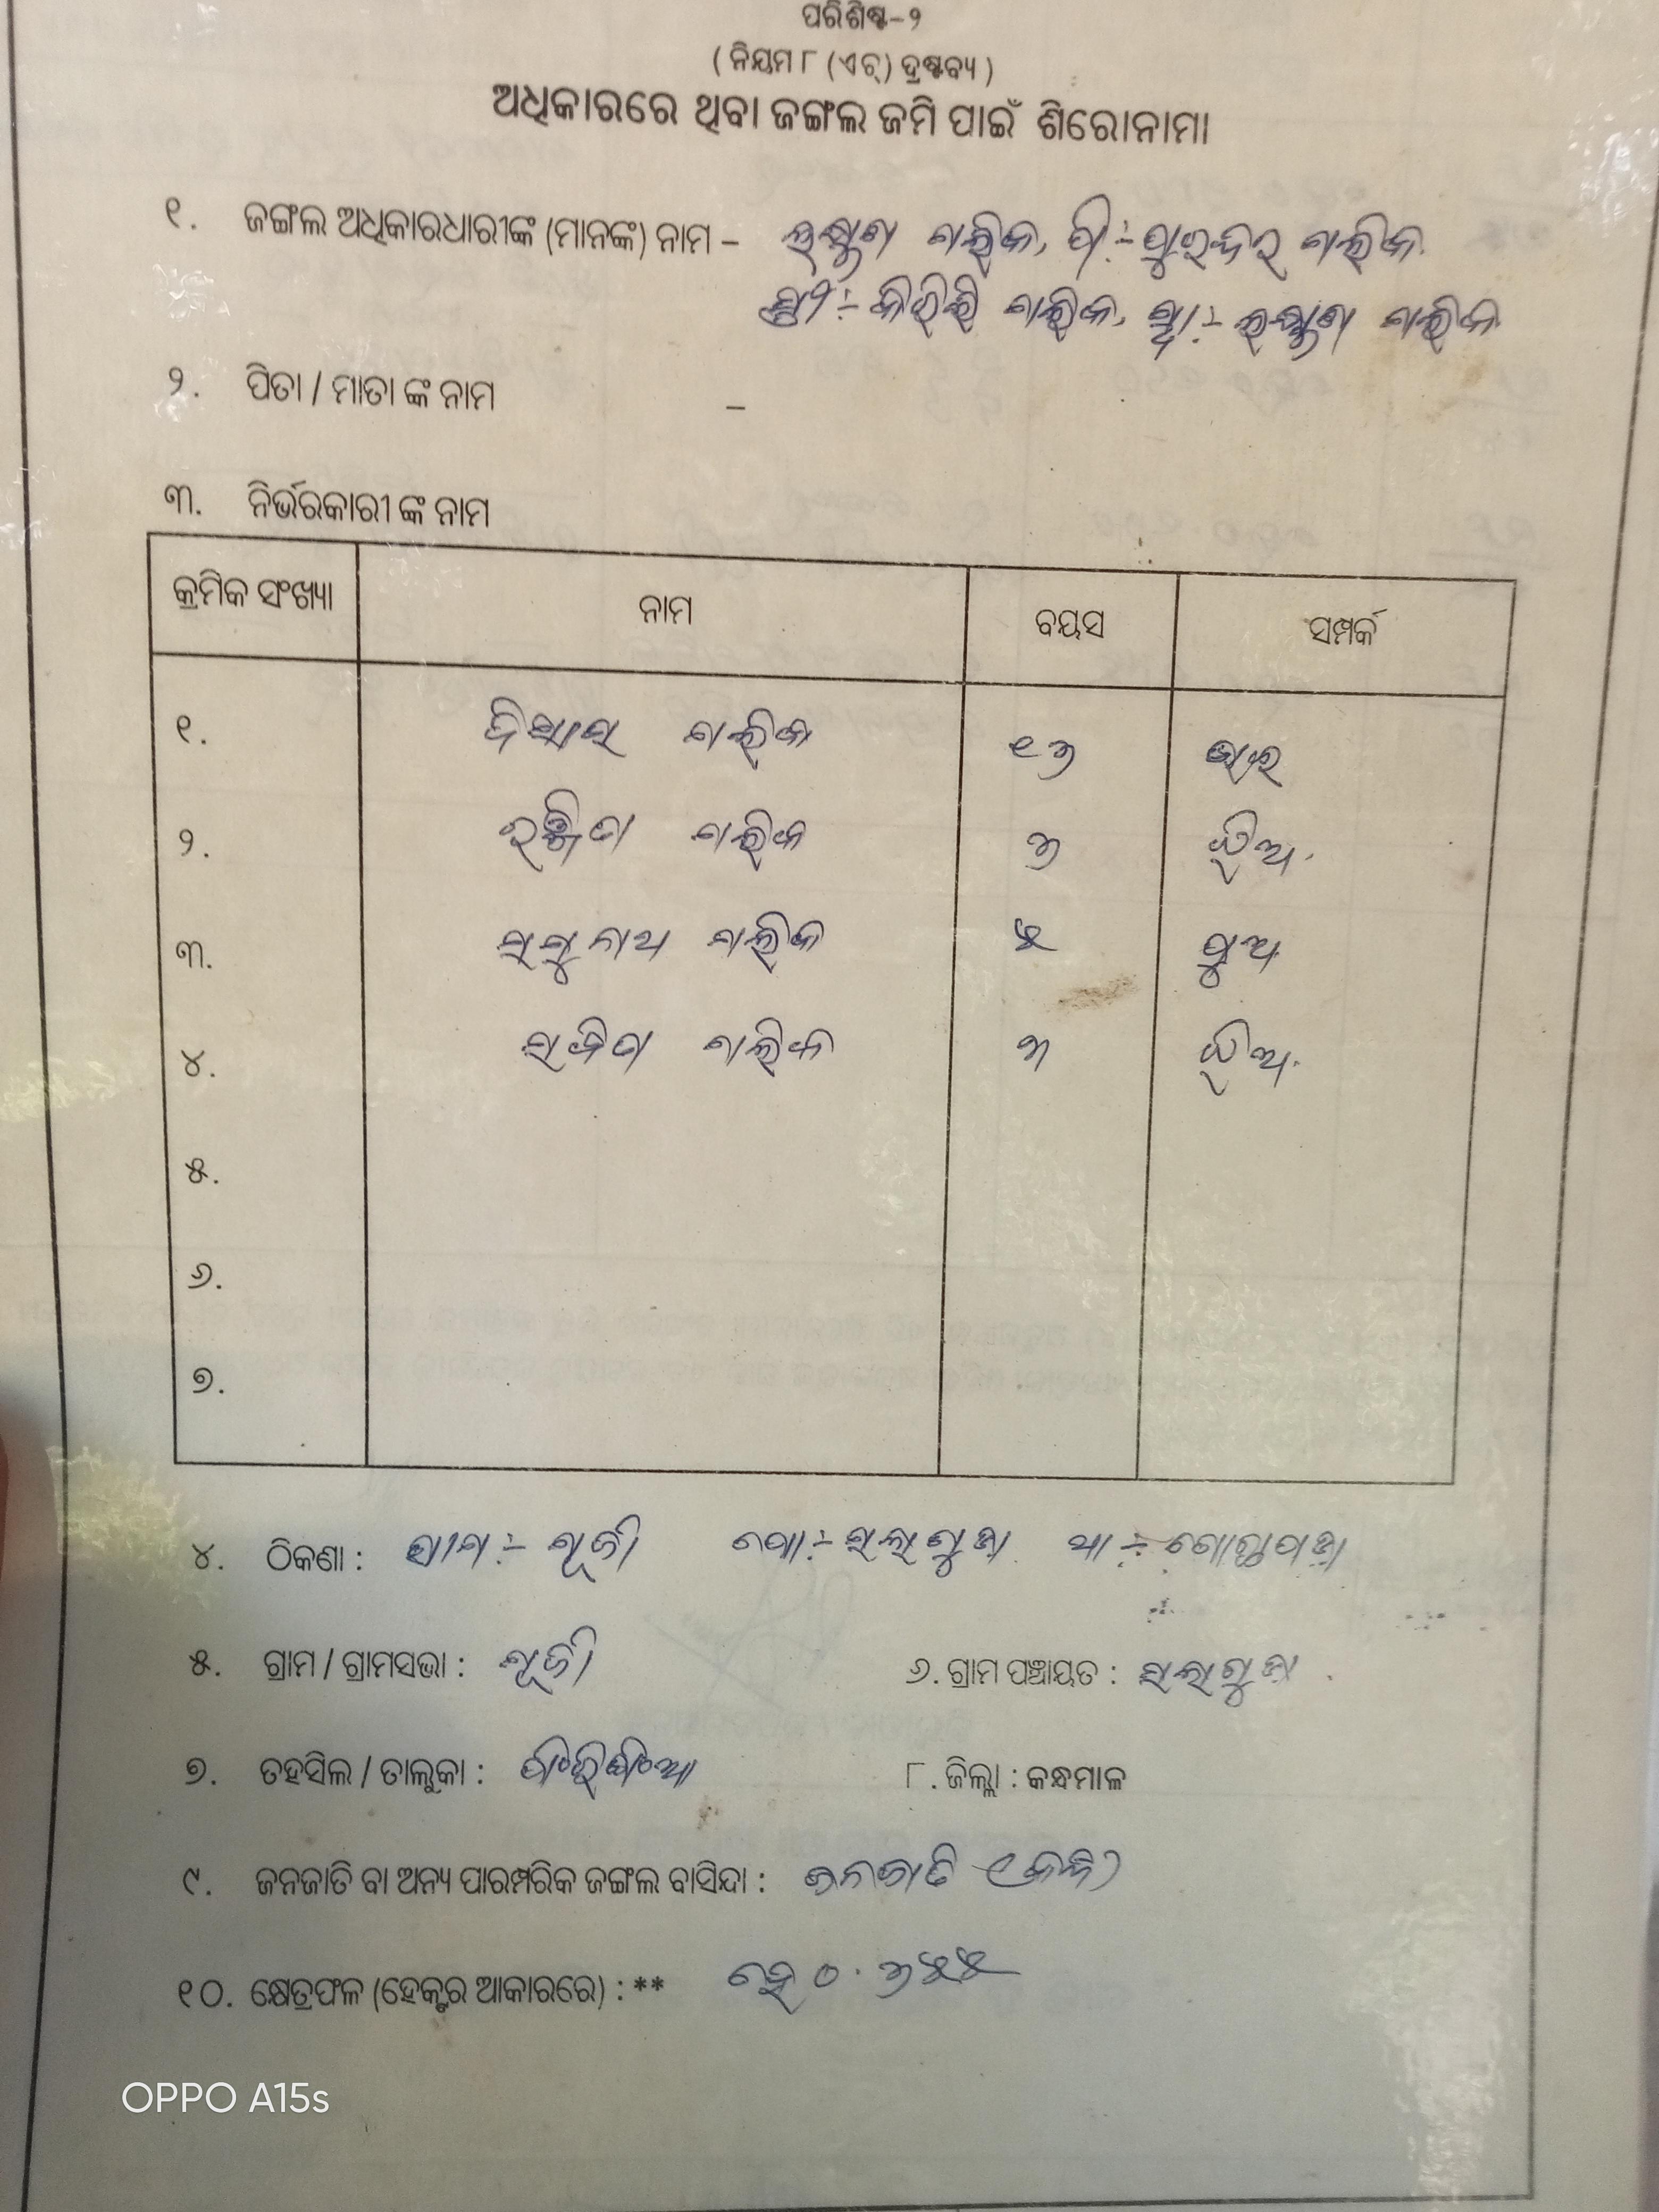 ପରିଶିଷ୍ଟ-୨
( ନିୟମ ୮ (ଏଚ୍) ଦ୍ରଷ୍ଟବ୍ୟ )
ଅଧିକାରରେ ଥିବା ଜଙ୍ଗଲ ଜମି ପାଇଁ ଶିରୋନାମା
୧. ଜଙ୍ଗଲ ଅଧିକାରଧାରୀଙ୍କ (ମାନଙ୍କ) ନାମ – ଲକ୍ଷ୍ମଣ ମଲିକ, ପି:- ପୁରନ୍ଦର ମଲିକ
ସ୍ତ୍ରୀ:- ମଲିକ, ସ୍ୱା:- ଲକ୍ଷ୍ମଣ ମଲିକ
୨. ପିତା / ମାତା ଙ୍କ ନାମ –
୩. ନିର୍ଭରକାରୀ ଙ୍କ ନାମ
କ୍ରମିକ ସଂଖ୍ୟା ନାମ ବୟସ ସମ୍ପର୍କ
୧. ମଲିକ ୧୬
୨. ରଞ୍ଜିତା ମଲିକ ୭ ଝିଅ
୩. ରଘୁନାଥ ମଲିକ ୫ ପୁଅ
୪. ସବିତା ମଲିକ ୩ ଝିଅ
୫.
୬.
୭.
୪. ଠିକଣା : ଗ୍ରାମ:- ପୋ:- ସଲାଗୁଡା ଥା:-
୫. ଗ୍ରାମ / ଗ୍ରାମସଭା :
୬. ଗ୍ରାମ ପଞ୍ଚାୟତ : ସଲାଗୁଡା
୭. ତହସିଲ / ତାଲୁକା : ଫିରିଙ୍ଗିଆ
୮. ଜିଲ୍ଲା : କନ୍ଧମାଳ
୯. ଜନଜାତି ବା ଅନ୍ୟ ପାରମ୍ପରିକ ଜଙ୍ଗଲ ବାସିନ୍ଦା : ଜନଜାତି (କନ୍ଧ)
୧୦. କ୍ଷେତ୍ରଫଳ (ହେକ୍ଟର ଆକାରରେ) : ** ହେ ୦.୭୫୫
OPPO A15s